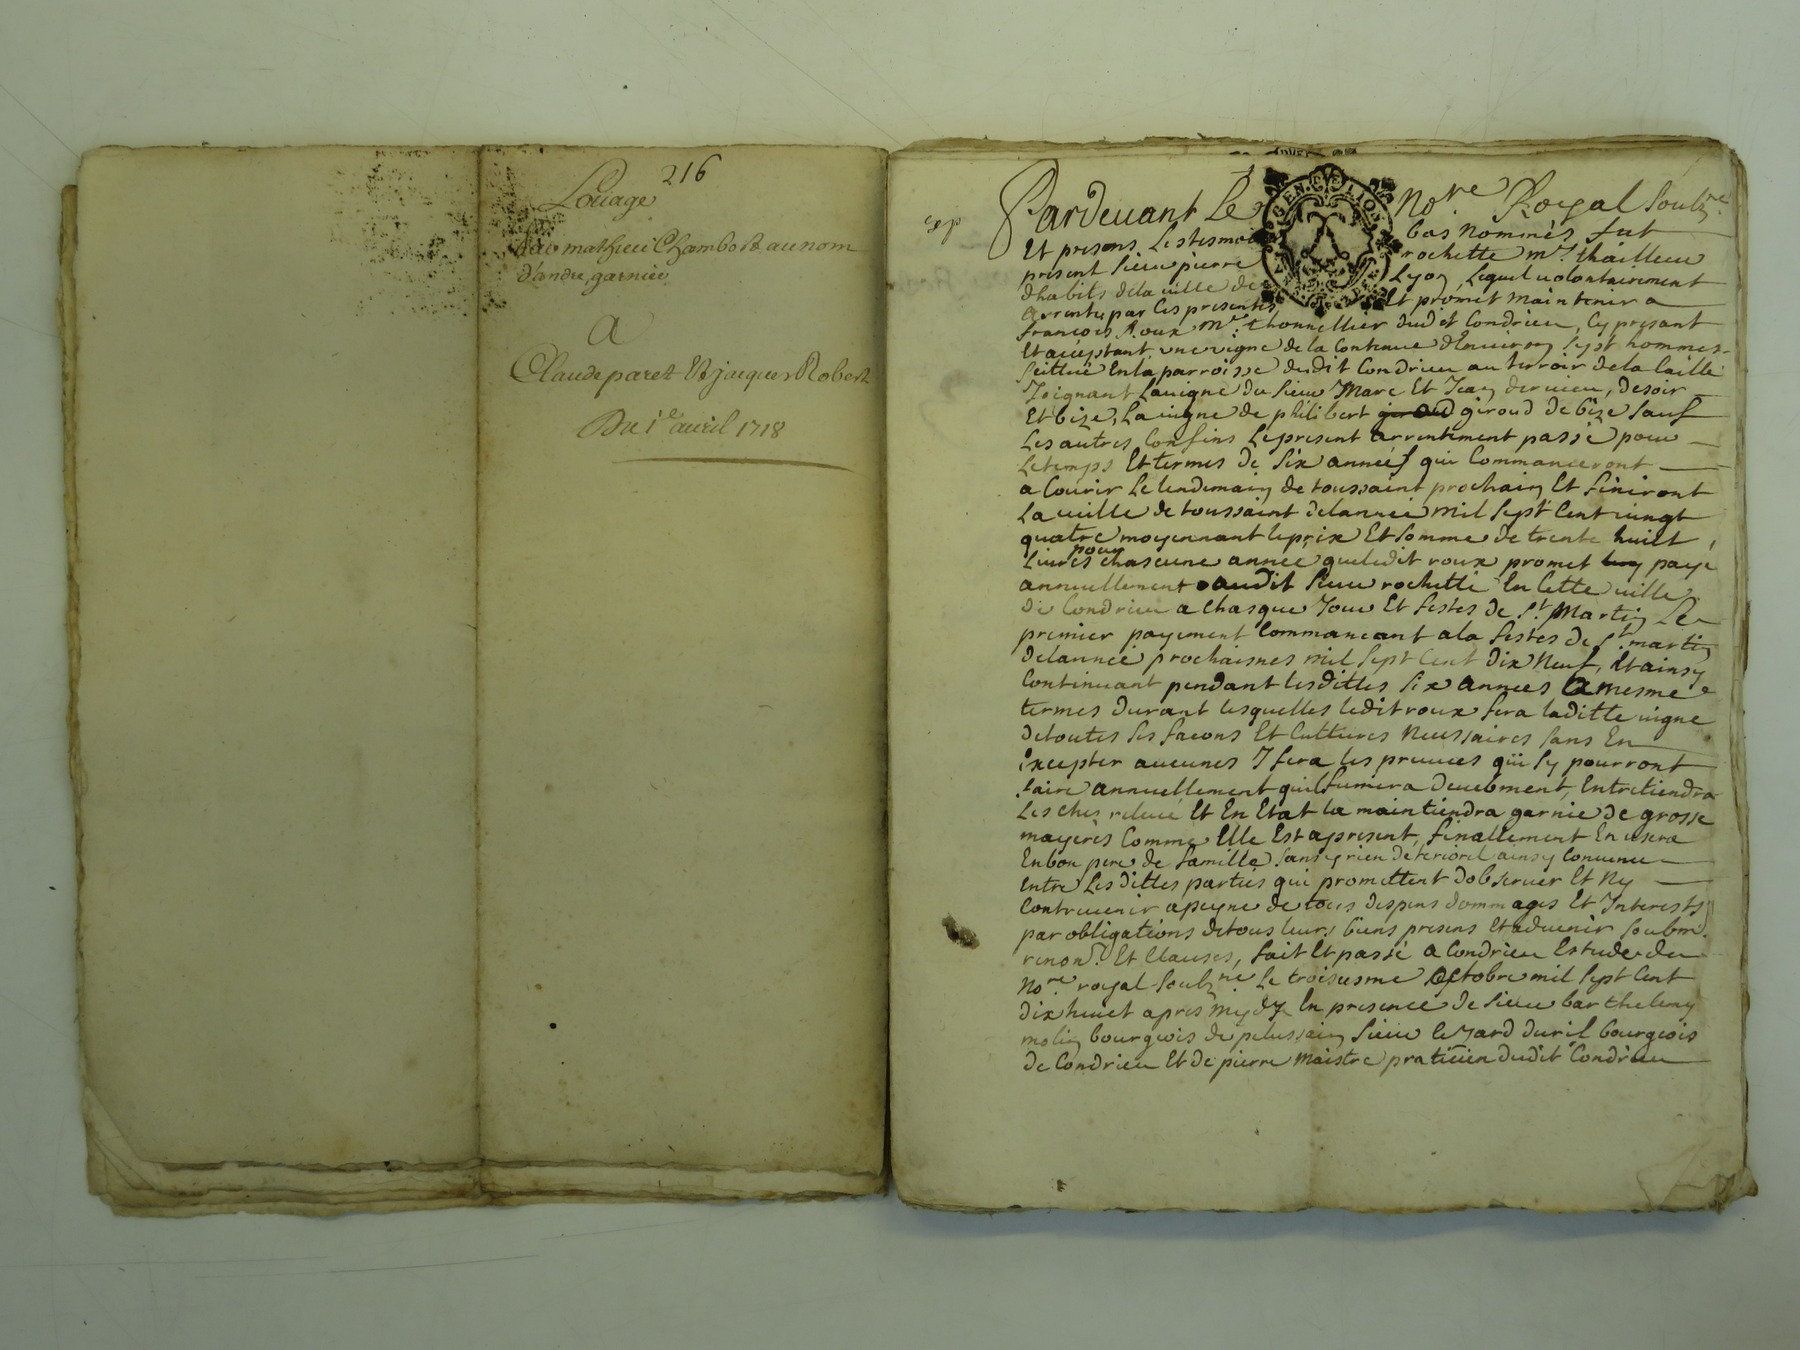 216
Louage
par mathieu Chambost au nom
d'andré, garnier
A
Claude paret Et jacques Robert
Du 1er avril 1718
exp
GEN. DE LION
Pardevant Le Nore Royal Soubzné
Et presens Les tesmoins bas Nommés fut
present Sieur pierre rochette mre thailleur
dhabits dela ville de Lyon, Lequel volontairement
arrente par Ces presentes Et promet maintenir a
françois Roux Mre thonnellier dudit Condrieu, Cy present
Et acceptant, une vigne de la Contenue denviron Sept hommes
Scittué En la parroisse dudit Condrieu au terroir de la Caille
Joignant La vigne du Sieur Marc Et Jean dervieu, de soir
Et bize, La vigne de philibert giroud de bize Sauf
Les autres Confins Le present arrentement passé pour
Le temps Et termes de Six années qui Commanceront
a Courir Le lendemain de toussaint prochain Et finiront
La veille de toussaint de lannée mil Sept Cent vingt
quatre moyennant le prix Et Somme de trente huict
Livres pour chascune année que ledit roux promet paye
annuellement audit Sieur rochette En Cette ville
de Condrieu a chasque Jour Et festes de St Martin Le
premier payement Commancant a la festes de St martin
de lannée prochaines mil Sept Cent dix Neuf, Et ainsy
Continuant pendant les dittes Six années a mesme
termes durant lesquelles ledit roux fera la ditte vigne
de toutes Ses facons Et Cultures Necessaires Sans En
Excepter aucunes J fera les preuves qui Sy pourront
faire annuellement quil fumera deuebment, Entretiendra
Les ches relevé Et En Etat la maintiendra garnie de grosse
mayeres Comme Elle Est apresent, finallement En usera
En bon pere de famille Sans y rien deteriorer ainsy Convenu
Entre Les dittes parties qui promettent dobserver Et Ny
Contrevenir a peyne de tous despens dommages Et Interests
par obligations de tous leurs biens presens Et advenir Soubm.
renon. Et Clauses, fait Et passé a Condrieu Estude du
Nore royal Soubzné Le troisiesme Octobre mil Sept Cent
dix huict apres Midy En presence de Sieur barthelemy
molin bourgeois de pelussain, Sieur Leonard duril bourgeois
de Condrieu Et de pierre Maistre praticien dudit Condrieu